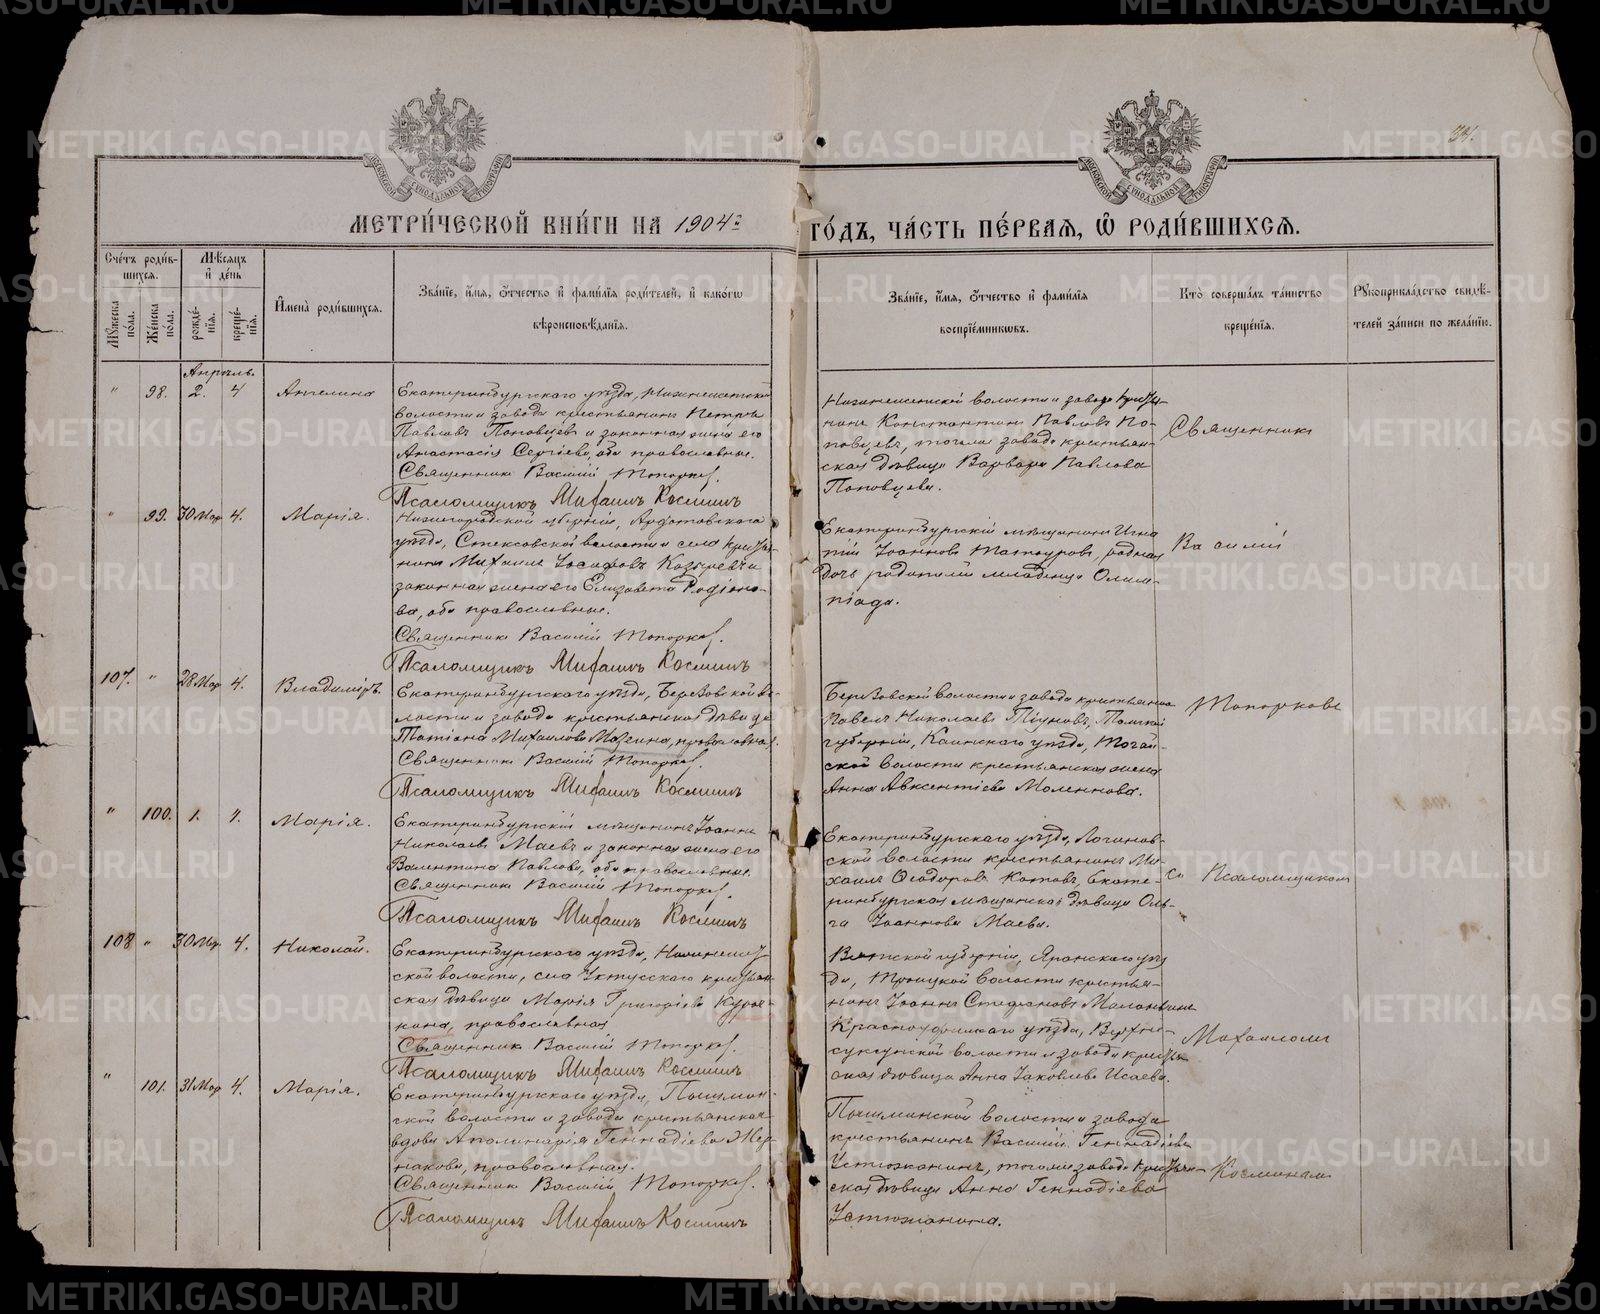 МЕТРИ́ЧЕСКОЙ КНИ́ГИ НА 1904й ГО́ДЪ, ЧА́СТЬ ПЕ́РВАЯ, Ѡ РОДИ́ВШИХСЯ.
34.
МОСКОВСКОЙ СѴНОДАЛЬНОЙ ТИПОГРАФІИ
МОСКОВСКОЙ СѴНОДАЛЬНОЙ ТИПОГРАФІИ
Сче́тъ роди́в-
шихся.
Мѣ́сяцъ
и҆ де́нь
Мꙋ́жеска по́ла.
Же́нска по́ла.
рожде́-
нїѧ.
креще́-
нїѧ.
И҆мена̀ роди́вшихсѧ.
Зва́нїе, и҆́мѧ, ѻ҆́тчество и҆ фами́лїѧ роди́телей, и҆ како́гѡ
вѣроисповѣ́данїѧ.
Зва́нїе, и҆́мѧ, ѻ҆́тчество и҆ фами́лїѧ
воспрїе́мникѡвъ.
Кто̀ соверша́лъ та́инство
креще́нїѧ.
Рꙋкоприкла́дство свидѣ́-
телей за́писи по жела́нїю.
Апрѣль
" 98. 2. 4 Ангелина
Екатеринбургскаго уѣзда, Нижнеисетской
волости и завода крестьянинъ Петръ
Павловъ Поповцевъ и законная жена его
Анастасія Сергіева, оба православные.
Священникъ Василій Топорков.
Псаломщикъ Михаилъ Косминъ
Нижнеисетской волости и завода крестья-
нинъ Константинъ Павловъ По-
повцевъ, тогоже завода крестьян-
ская дѣвица Варвара Павлова
Поповцева.
Священникъ
" 99. 30 Мар 4. Марія.
Нижегородской губерніи, Ардатовскаго
уѣзда, Стексовской волости и села крестья-
нинъ Михаилъ Іосифовъ Козыревъ и
законная жена его Елизавета Родіоно-
ва, оба православные.
Священникъ Василій Топорков.
Псаломщикъ Михаилъ Косминъ
Екатеринбургскій мѣщанинъ Игна-
тій Іоанновъ Татауровъ, родная
дочь родителей младенца Олим-
піада.
Василій
107. " 28 Мар 4. Владиміръ.
Екатеринбургскаго уѣзда, Березовской во-
лости и завода крестьянская дѣвица
Татіана Михаилова Мазеина, православная.
Священникъ Василій Топорков.
Псаломщикъ Михаилъ Косминъ
Березовской волости и завода крестьянинъ
Павелъ Николаевъ Тіуновъ, Томской
губерніи, Каинскаго уѣзда,
ской волости крестьянская жена
Анна Авксентіева
Топорковъ
" 100. 1. 4. Марія.
Екатеринбургскій мѣщанинъ Іоаннъ
Николаевъ Маевъ и законная жена его
Валентина Павлова, оба православные.
Священникъ Василій Топорков.
Псаломщикъ Михаилъ Косминъ
Екатеринбургскаго уѣзда, Логинов-
ской волости крестьянинъ Ми-
хаилъ Ѳеодоровъ Котовъ, Екате-
ринбургская мѣщанская дѣвица Оль-
га Іоаннова Маева.
съ Псаломщикомъ
108 " 30 Мар. 4. Николай.
Екатеринбургскаго уѣзда, Нижнеисет-
ской волости, села Уктусскаго крестьян-
ская дѣвица Марія Григоріева Куроч-
кина, православная
Священникъ Василій Топорков.
Псаломщикъ Михаилъ Косминъ
Вятской губерніи, Яранскаго уѣз-
да, Троицкой волости крестья-
нинъ Іоаннъ Стефановъ
Красноуфимскаго уѣзда, Верхне-
суксунской волости и завода крестьян-
ская дѣвица Анна Іаковлева Исаева.
Михаиломъ
" 101. 31 Мар 4. Марія.
Екатеринбургскаго уѣзда, Пышмин-
ской волости и завода крестьянская
вдова Аполинарія Геннадіева Жер-
накова, православная.
Священникъ Василій Топорков.
Псаломщикъ Михаилъ Косминъ
Пышминской волости и завода
крестьянинъ Василій Геннадіевъ
Устюжанинъ, тогоже завода крестьян-
ская дѣвица Анна Геннадіева
Устюжанина.
Косминымъ
METRIKI.GASO-URAL.RU